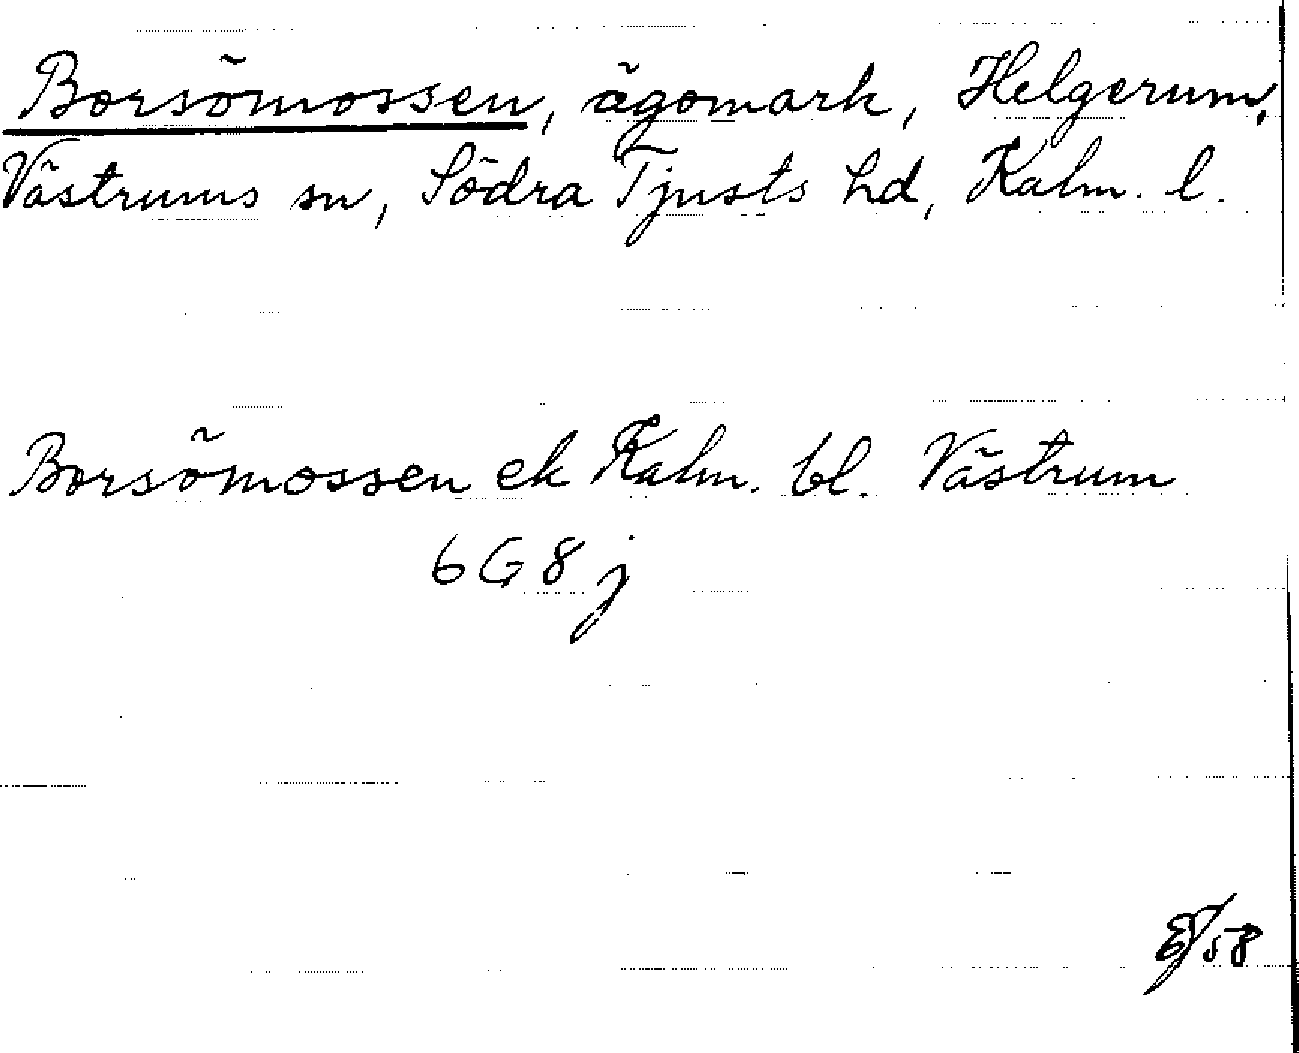 Borsömossen, ägomark, Helgerum,
Västrums sn, Södra Tjusts hd, Kalm. l.
Borsömossen ek Kalm. bl. Västrum
6G8j